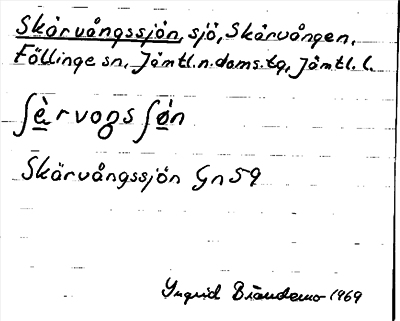 Skärvångssjön, sjö, Skärvången,
Föllinge sn, Jämtl.n.doms.tg, Jämtl.l.
ʃɛ̀rvogsʃø̀n
Skärvångssjön Gn 59
Yngvid Brändemo 1969